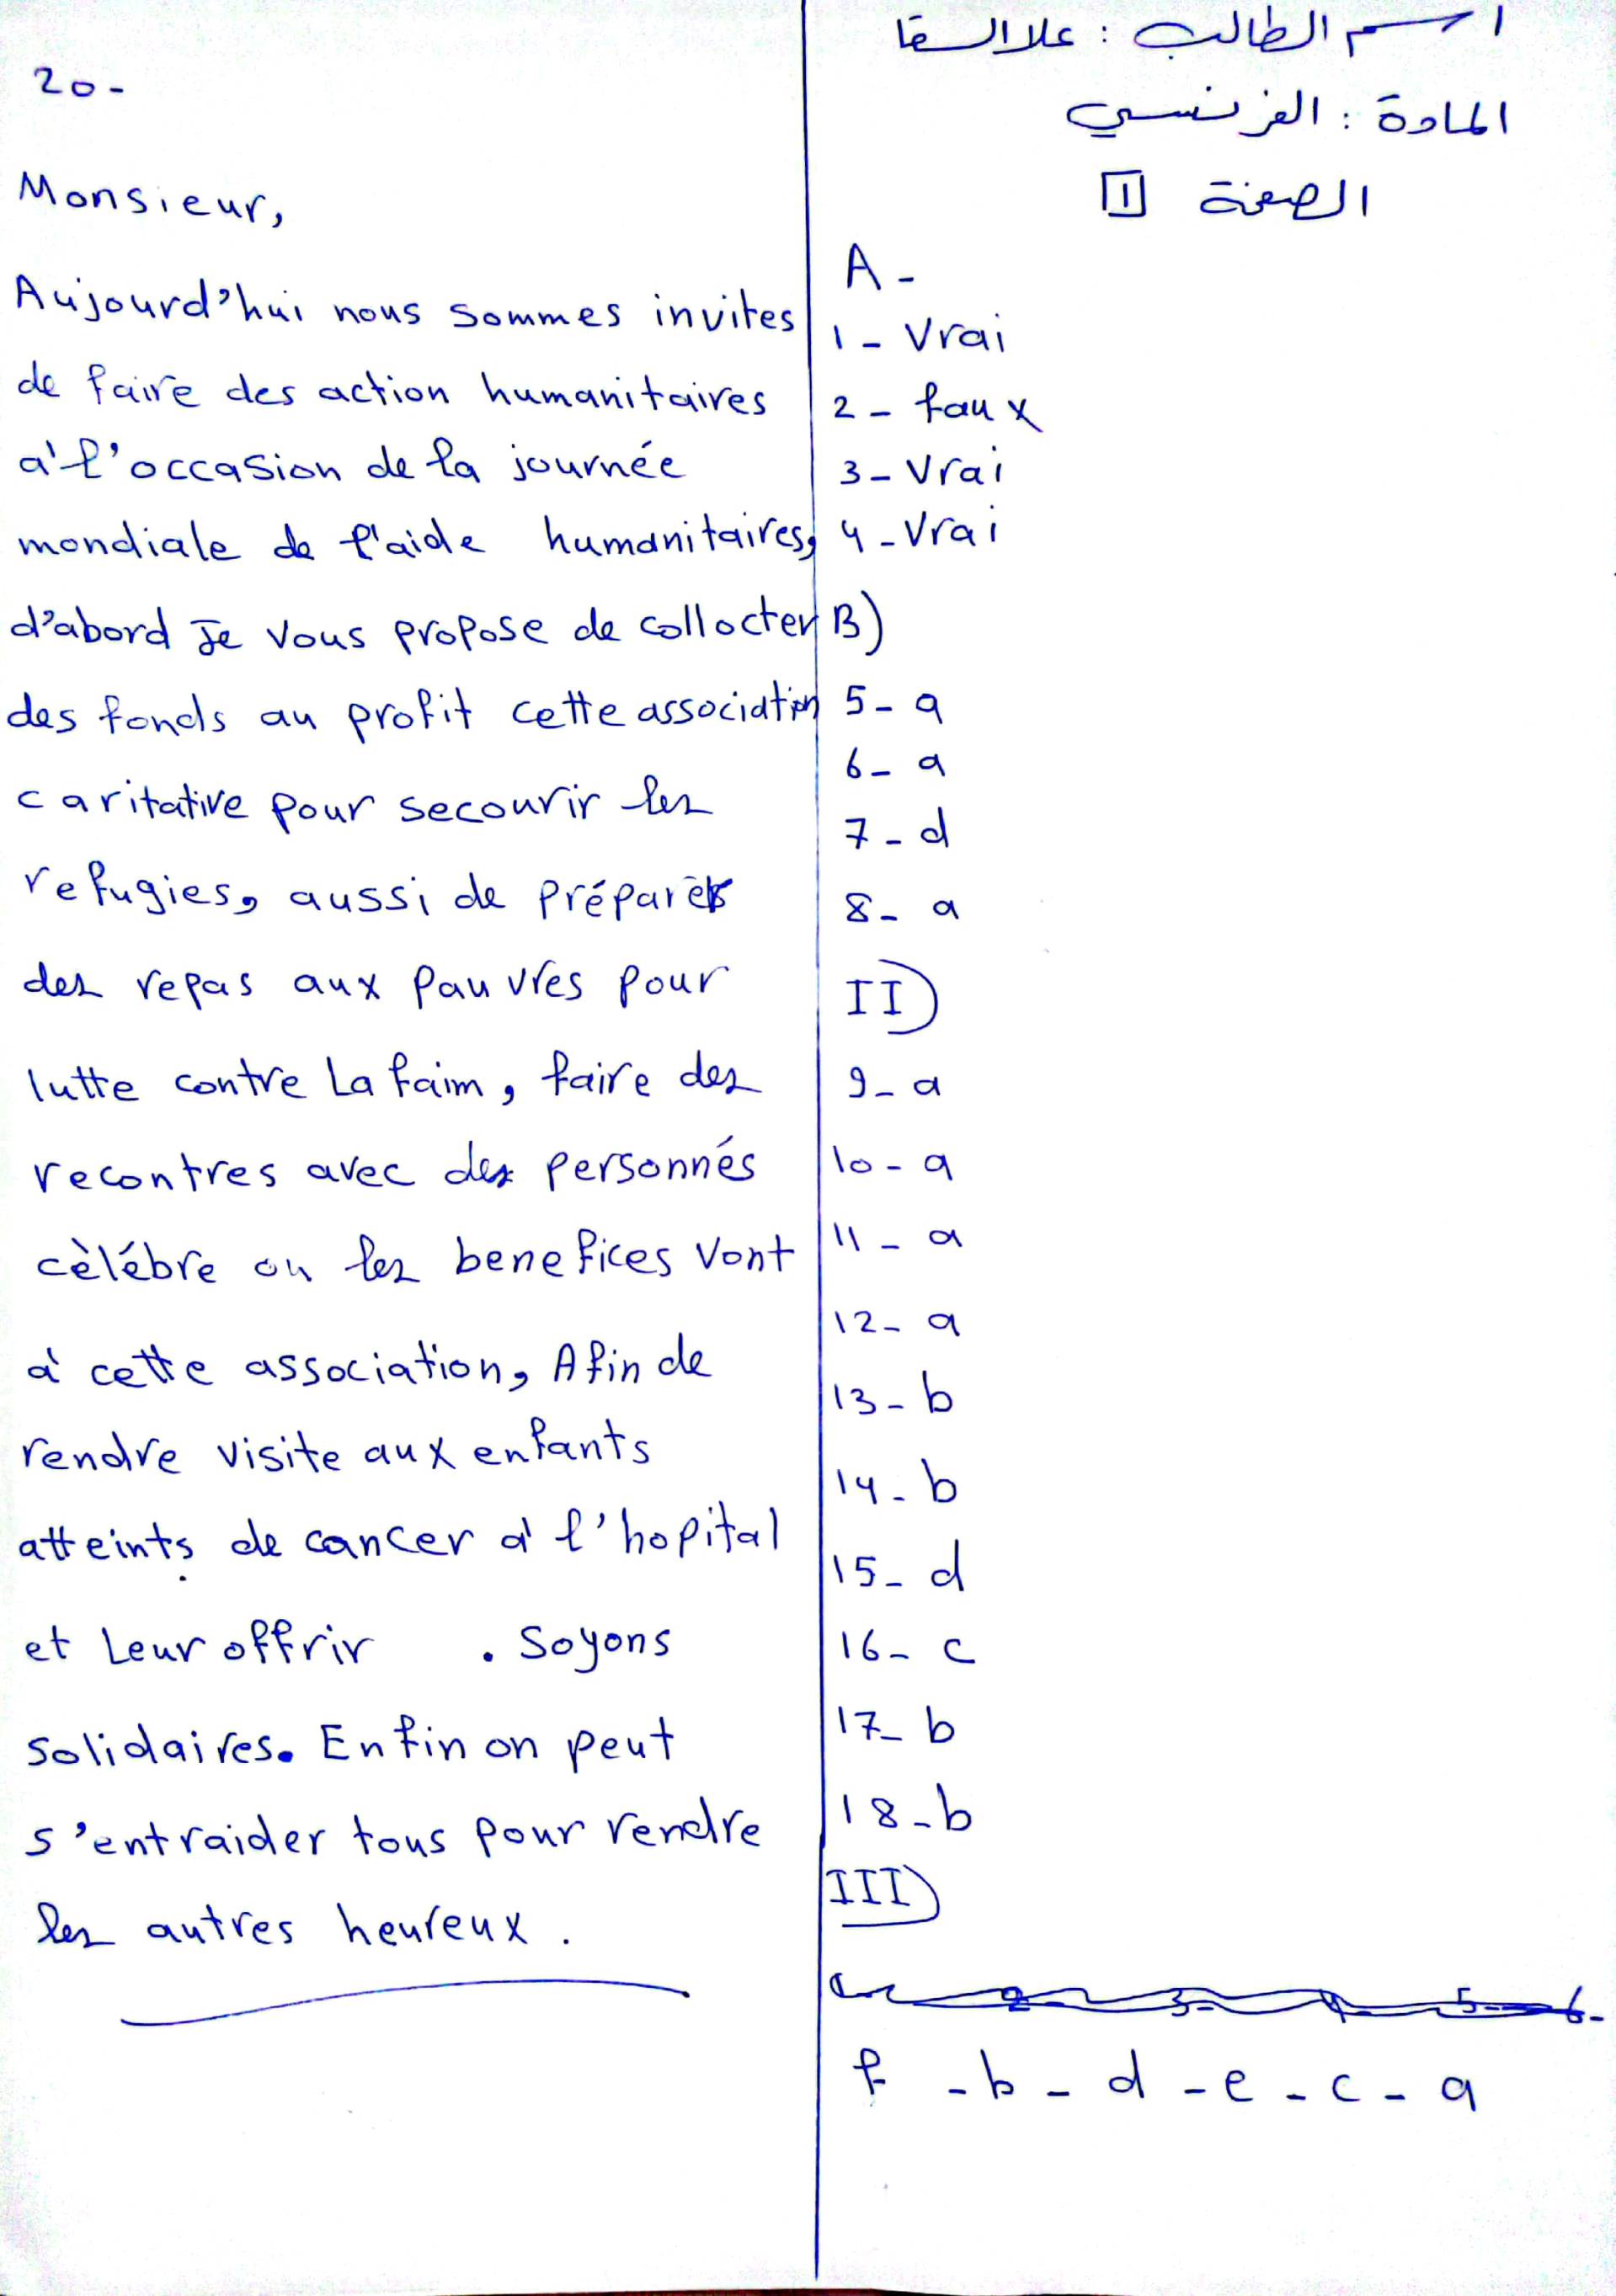 اسم الطالب : علا السقا
المادة : الفرنسي
الصفحة 1
A -
1 - Vrai
2 - faux
3 - Vrai
4 - Vrai
B)
5 - a
6 - a
7 - d
8 - a
II)
9 - a
10 - a
11 - a
12 - a
13 - b
14 - b
15 - d
16 - c
17 - b
18 - b
III)
f - b - d - e - c - a
20 -
Monsieur,
Aujourd'hui nous sommes invites
de faire des action humanitaires
à l'occasion de la journée
mondiale de l'aide humanitaires,
d'abord Je vous propose de collocter
des fonds au profit cette association
caritative pour secourir les
refugies, aussi de préparer
des repas aux pauvres pour
lutte contre La faim, faire des
recontres avec des personnés
cèlébre ou les benefices vont
à cette association, Afin de
rendre visite aux enfants
atteints de cancer à l'hopital
et Leur offrir . Soyons
solidaires. Enfin on peut
s'entraider tous pour rendre
les autres heureux .